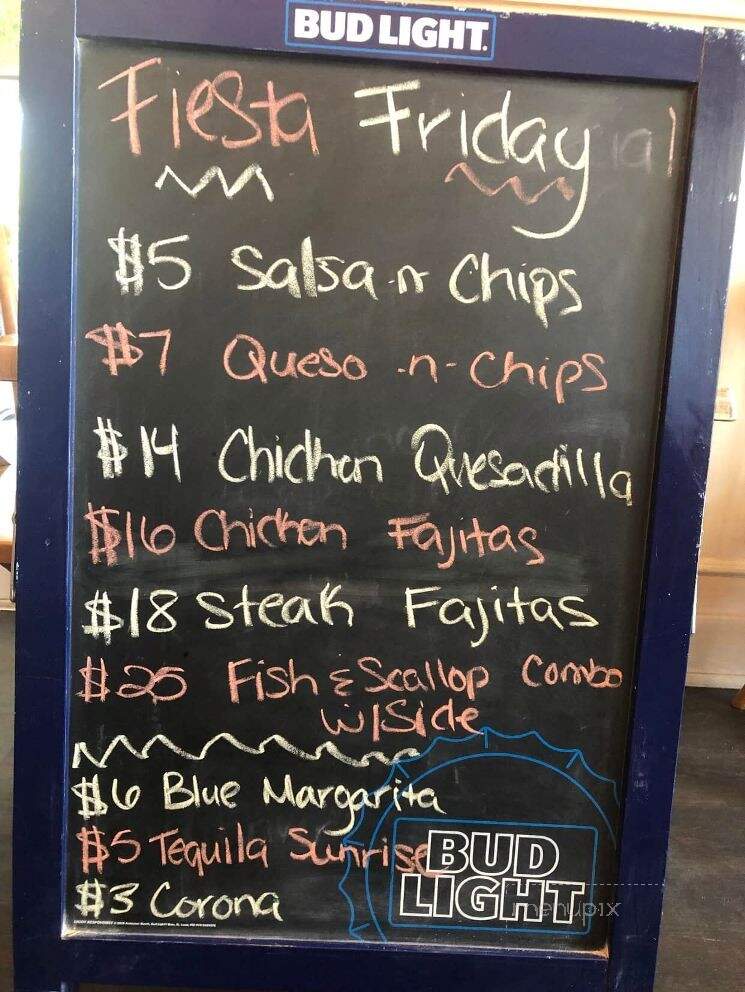 BUD LIGHT.
Fiesta Friday
$5 Salsa-n-Chips
$7 Queso -n- Chips
$14 Chicken Quesadilla
$16 Chicken Fajitas
$18 Steak Fajitas
$25 Fish & Scallop Combo
w/Side
$6 Blue Margarita
$5 Tequila Sunrise
$3 Corona
BUD
LIGHT
menupix